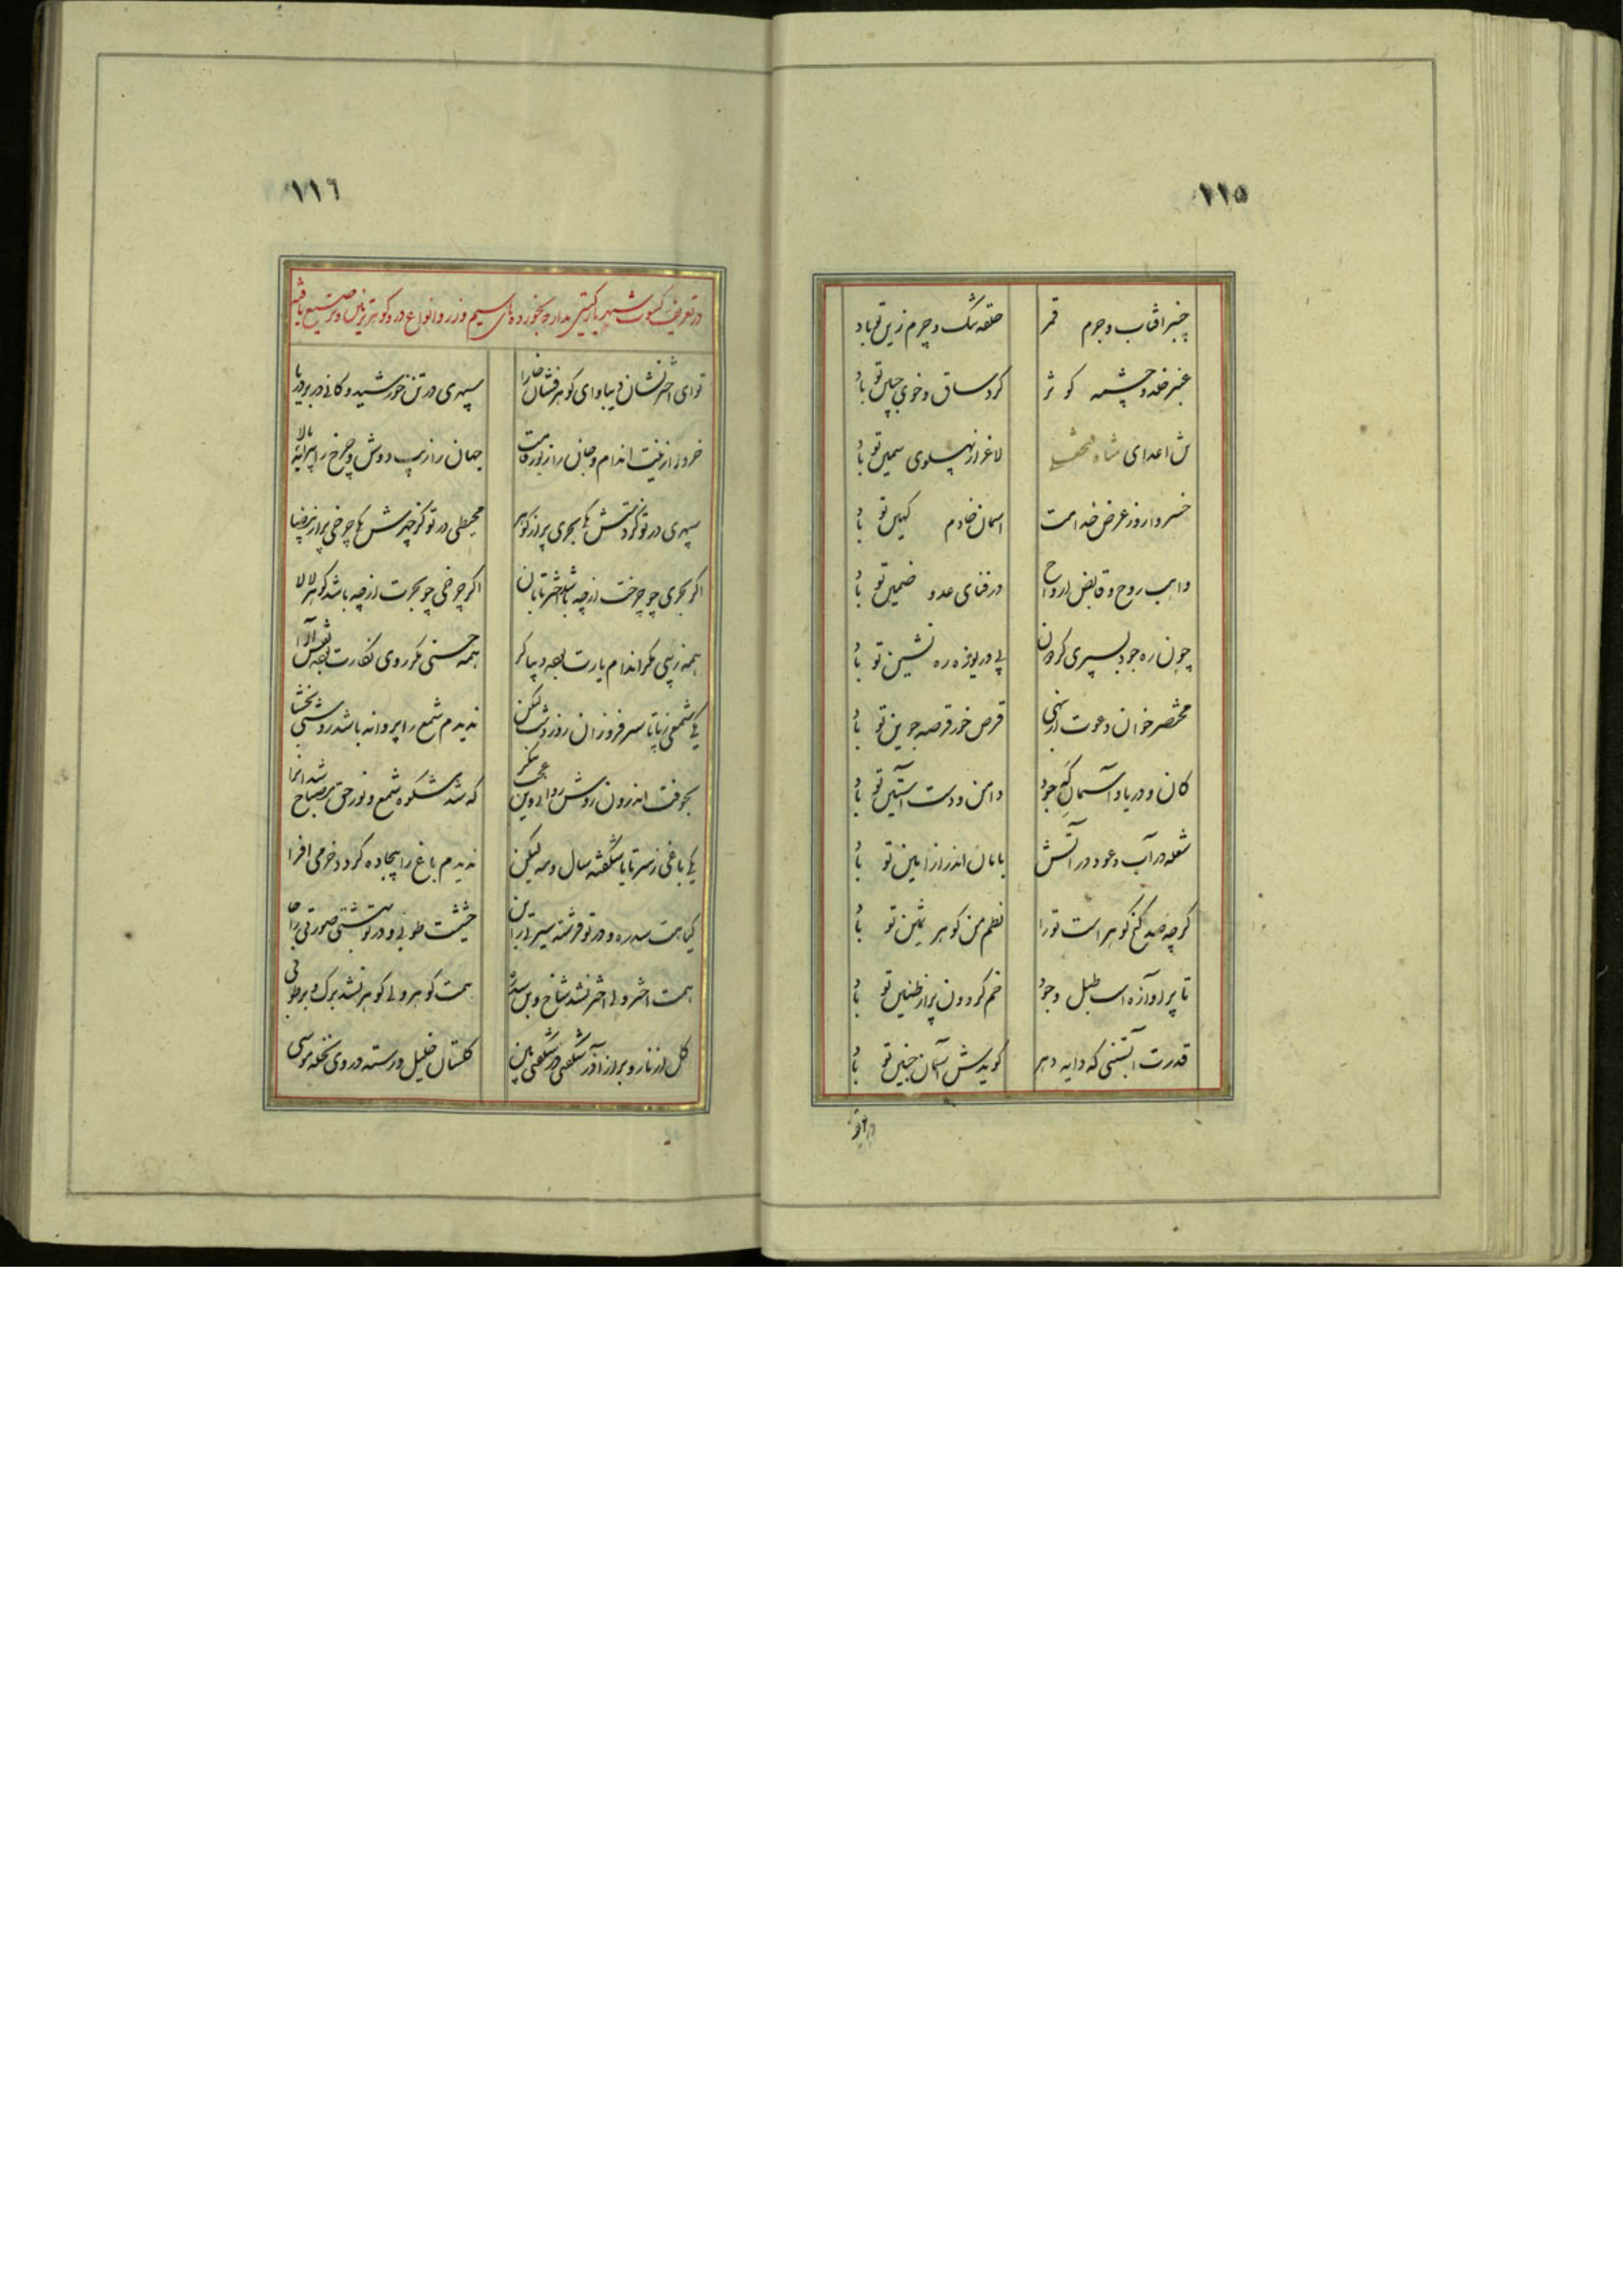 ١١٥
چنبر آفتاب و جرم قمر حلقه تنگ و چرم زین تو باد
عنبر خلد و چشمه کوثر گرد ساق و خوی جبین تو باد
ش اعدای شاه لاغر از پهلوی سمین تو باد
خسروا روز عرض خدامت آسمان خادم کهین تو باد
واهب روح و قابض ارواح در فنای عدو ضمین تو باد
چون ره جود بسپری گردون پی دریوزه ره نشین تو باد
مختصر خوان دعوت ار نهی قرص خور قرصه جوین تو باد
کان و دریا و آسمان گه جود دامن و دست و آستین تو باد
شعله در آب و عود در آتش بامان اندر از امین تو باد
گرچه صد گنج گوهر است تو را نظم من گوهر ثمین تو باد
تا پر آوازه است طبل وجود خم گردون پر از طنین تو باد
قدرت آبستنی که دایه دهر گویدش آسمان جنین تو باد
١١٦
در تعریف کسوت شهریار گیتی مدار که بخورده های سیم و زر و انواع در و گوهر تزیین و ترصیع یافته
تو ای اختر نشان دیبا و ای گوهر فشان خارا سپهری در تن خورشید و کانی در بر دریا
خرد را زینت اندام و جان را زیور قامت جهان را زیب دوش و چرخ را پیرایه بالا
سپهری در تو گردنش یکی بحری پر از گوهر محیطی در تو کز چهرش یکی چرخی پر از بیضا
اگر بحری چو چرخت از چه باشد اختر تابان اگر چرخی چو بحرت از چه باشد گوهر لالا
همه زیبی مگر اندام یارت بعد دیباگر همه حسنی مگر روی نگارت بعد نقش آرا
یکی شمعی ز پا تا سر فروزان روز و شب لیکن ندیدم شمع را پروانه باشد روشنی بخشا
بجوفت اندرون روشن روانی وین عجب بنگر که شد مشکوه شمع و نور حق مصباح
یکی باغی ز سر تا پا شکفته سال و مه لیکن ندیدم باغ را بیجاده گردد خرمی افزا
گیاهت سدره و در تو فرشته سیرتی را تن خشیشت طوبی و در تو بهشتی صورتی را جا
همت اختر ولی اختر نشد شاخ و بن سدره همت گوهر ولی گوهر نشد برگ و بر طوبی
گل از نار و براز آذر شگفتی در شگفتی بین گلستان خلیل و رسته در وی نخله موسی